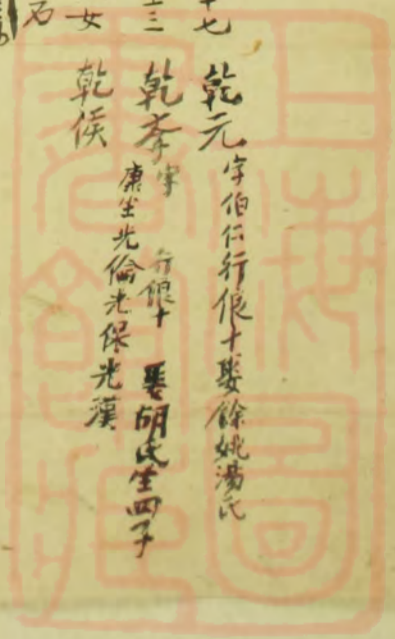 十七
乾元 字伯仁行俍十娶餘姚湯氏
三
乾李 字 行俍十 娶胡氏生四子
康生光倫光保光漢
女
乾侯
石
上海圖書館藏